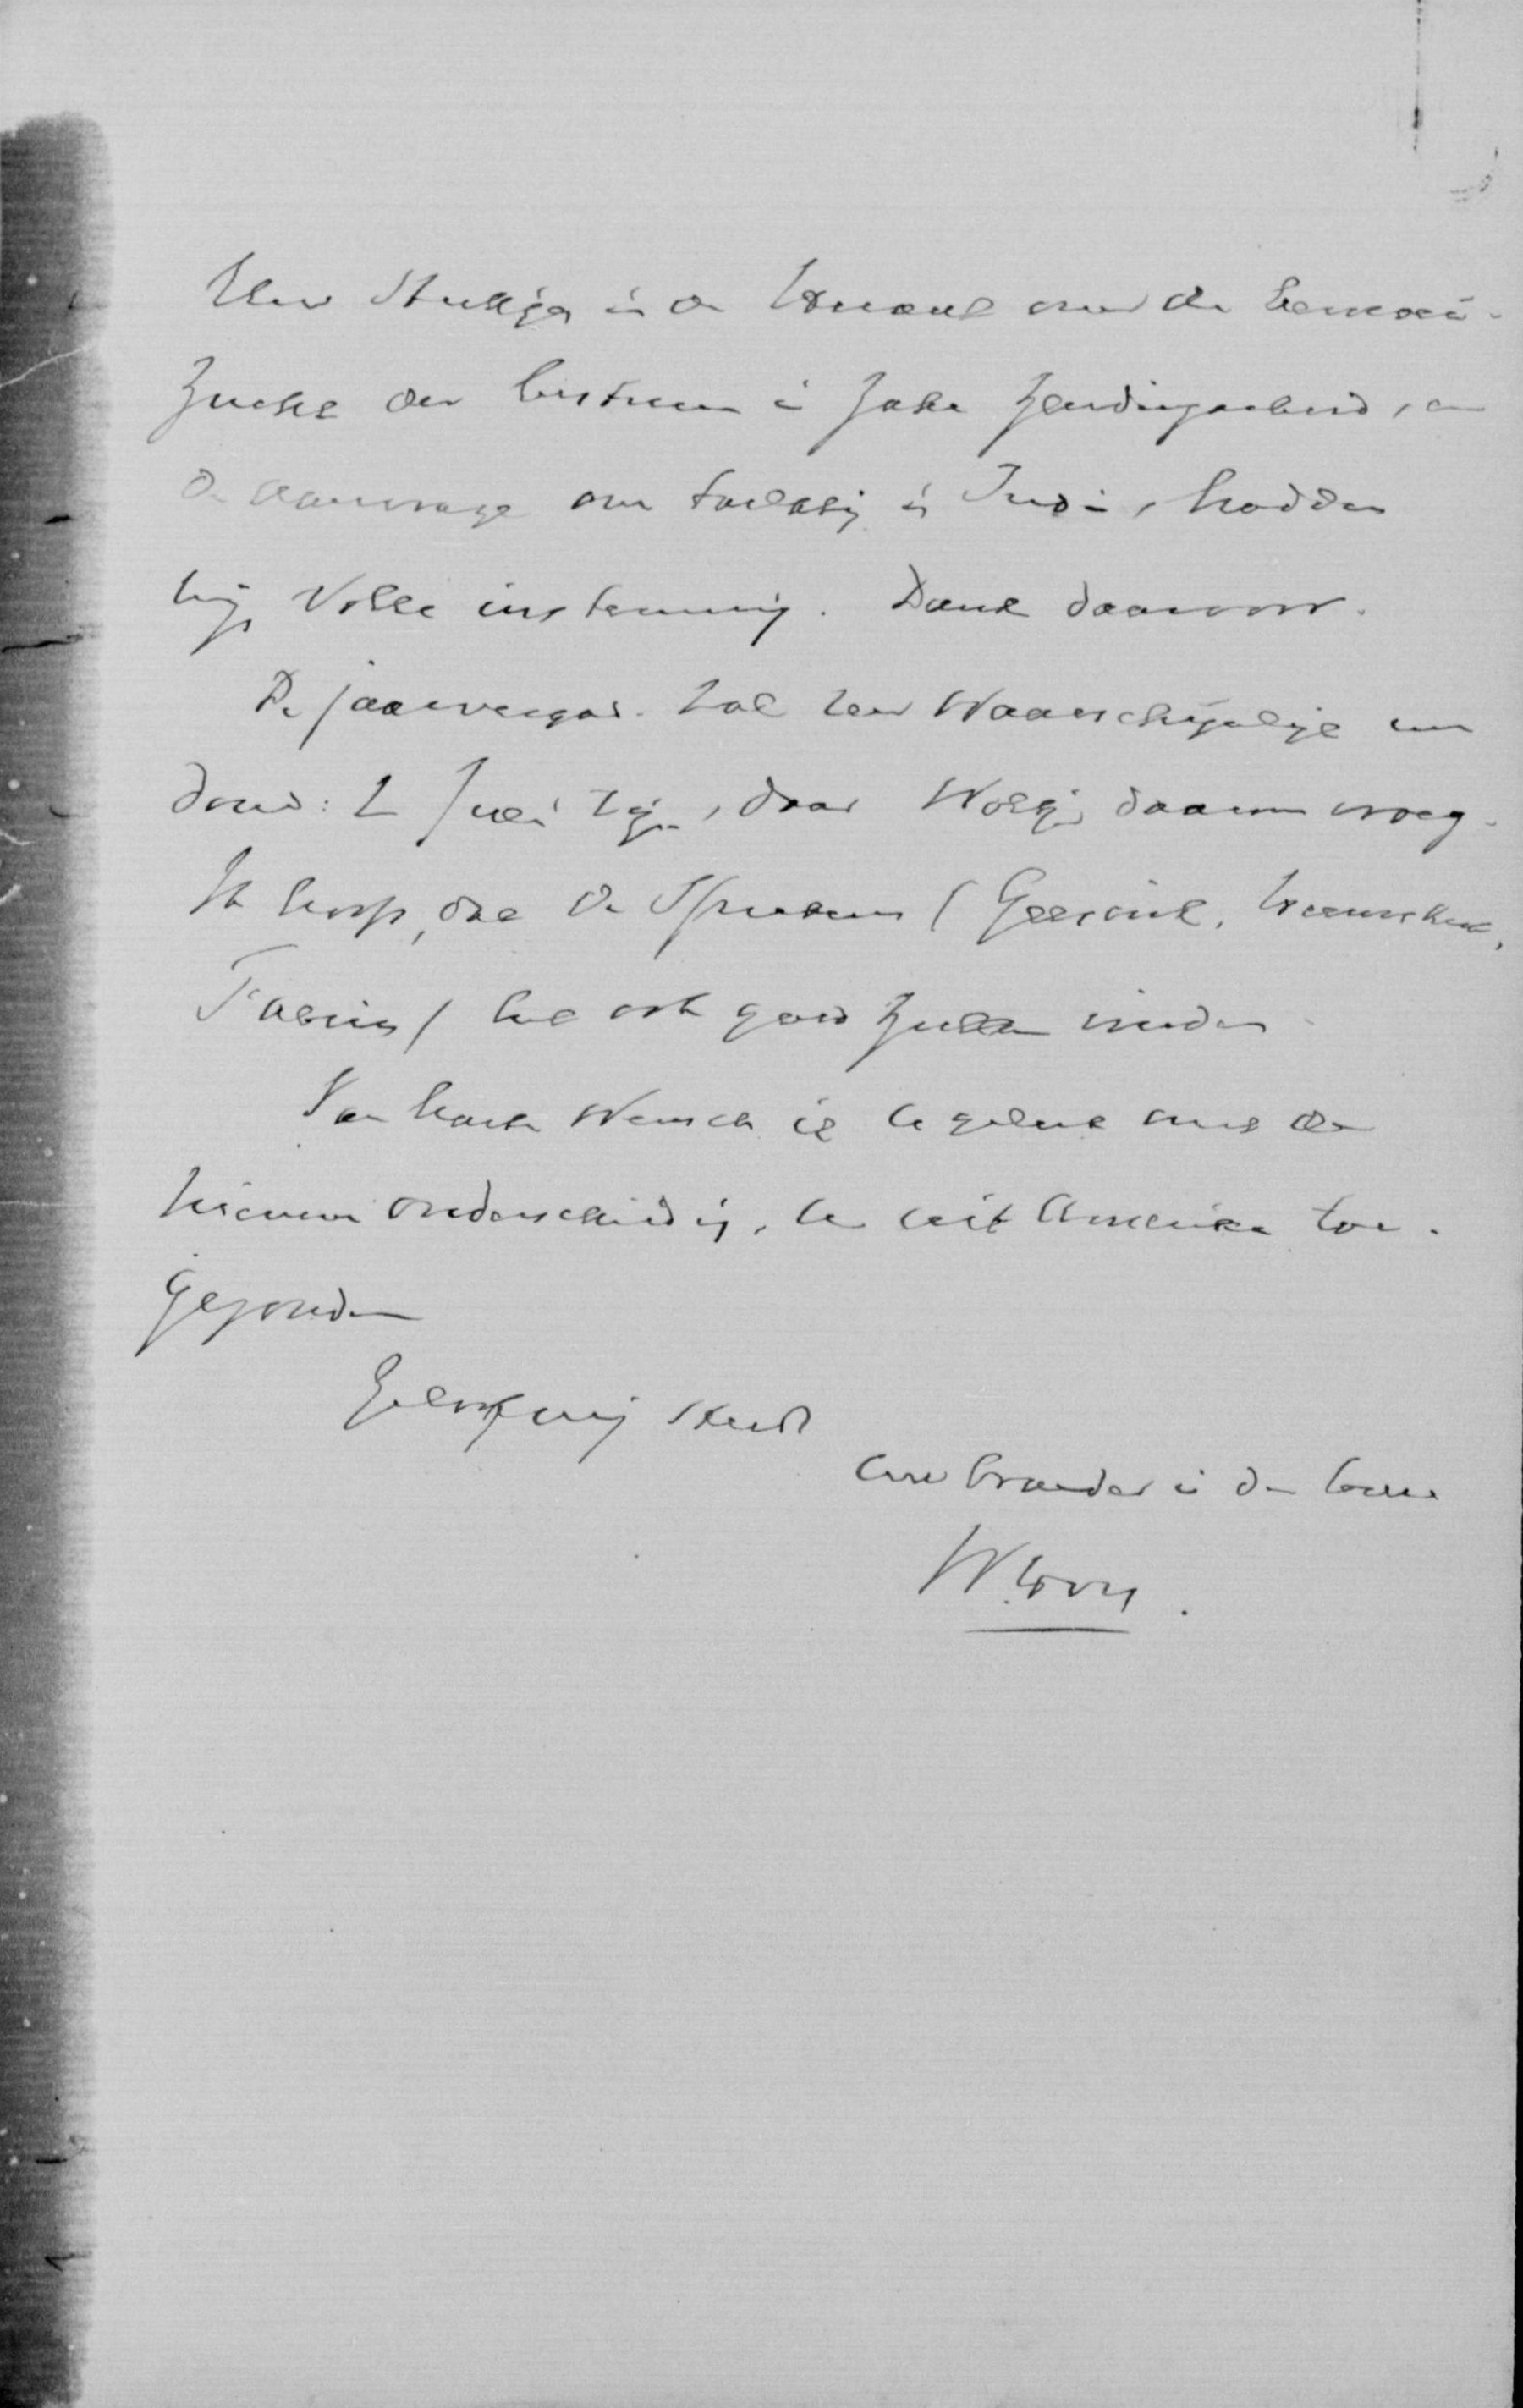 Uw stukjes in de Heraut over de bemoei-
zucht der besturen in zake zendingsarbeid, en
de aanvrage om toelating in Indië, hadden
mijn volle instemming. Dank daarvoor.
De jaarvergad. zal zeer waarschijnlijk nu
dond: 2 Juli zijn, daar Woltjer daarom vroeg.
Ik hoop, dat de Sprekers (Geesink,
Fabius) het ook goed zullen vinden
Van harte wensch ik U geluk met de
nieuwe onderscheiding, U uit Amerika toe-
gezonden
Geloof mij steeds
Uw broeder in den Heere
W. Hovy.